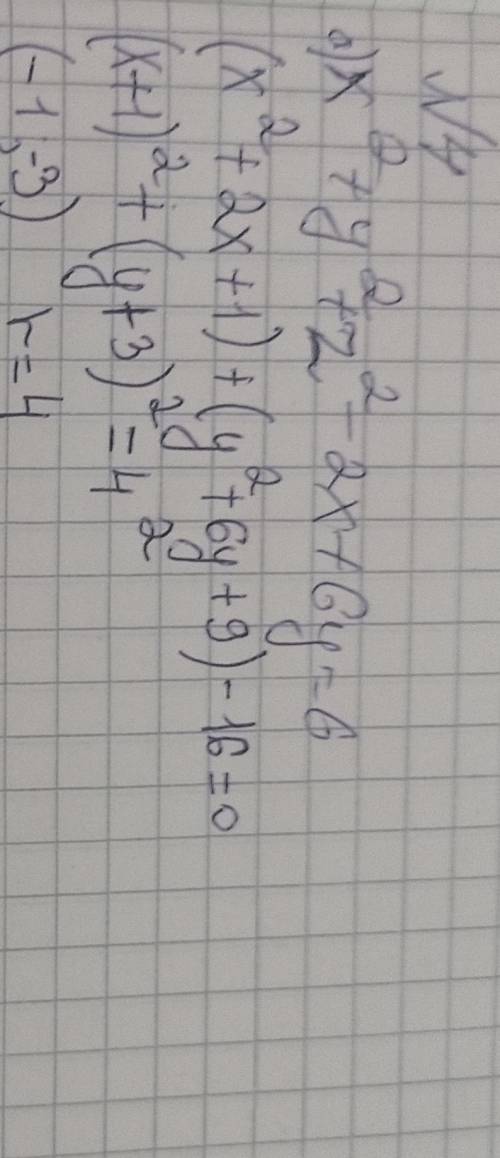 №4
a) x² + y² + z² - 2x + 6y = 6
(x² + 2x + 1) + (y² + 6y + 9) - 16 = 0
(x+1)² + (y+3)² = 4²
(-1; -3) r = 4